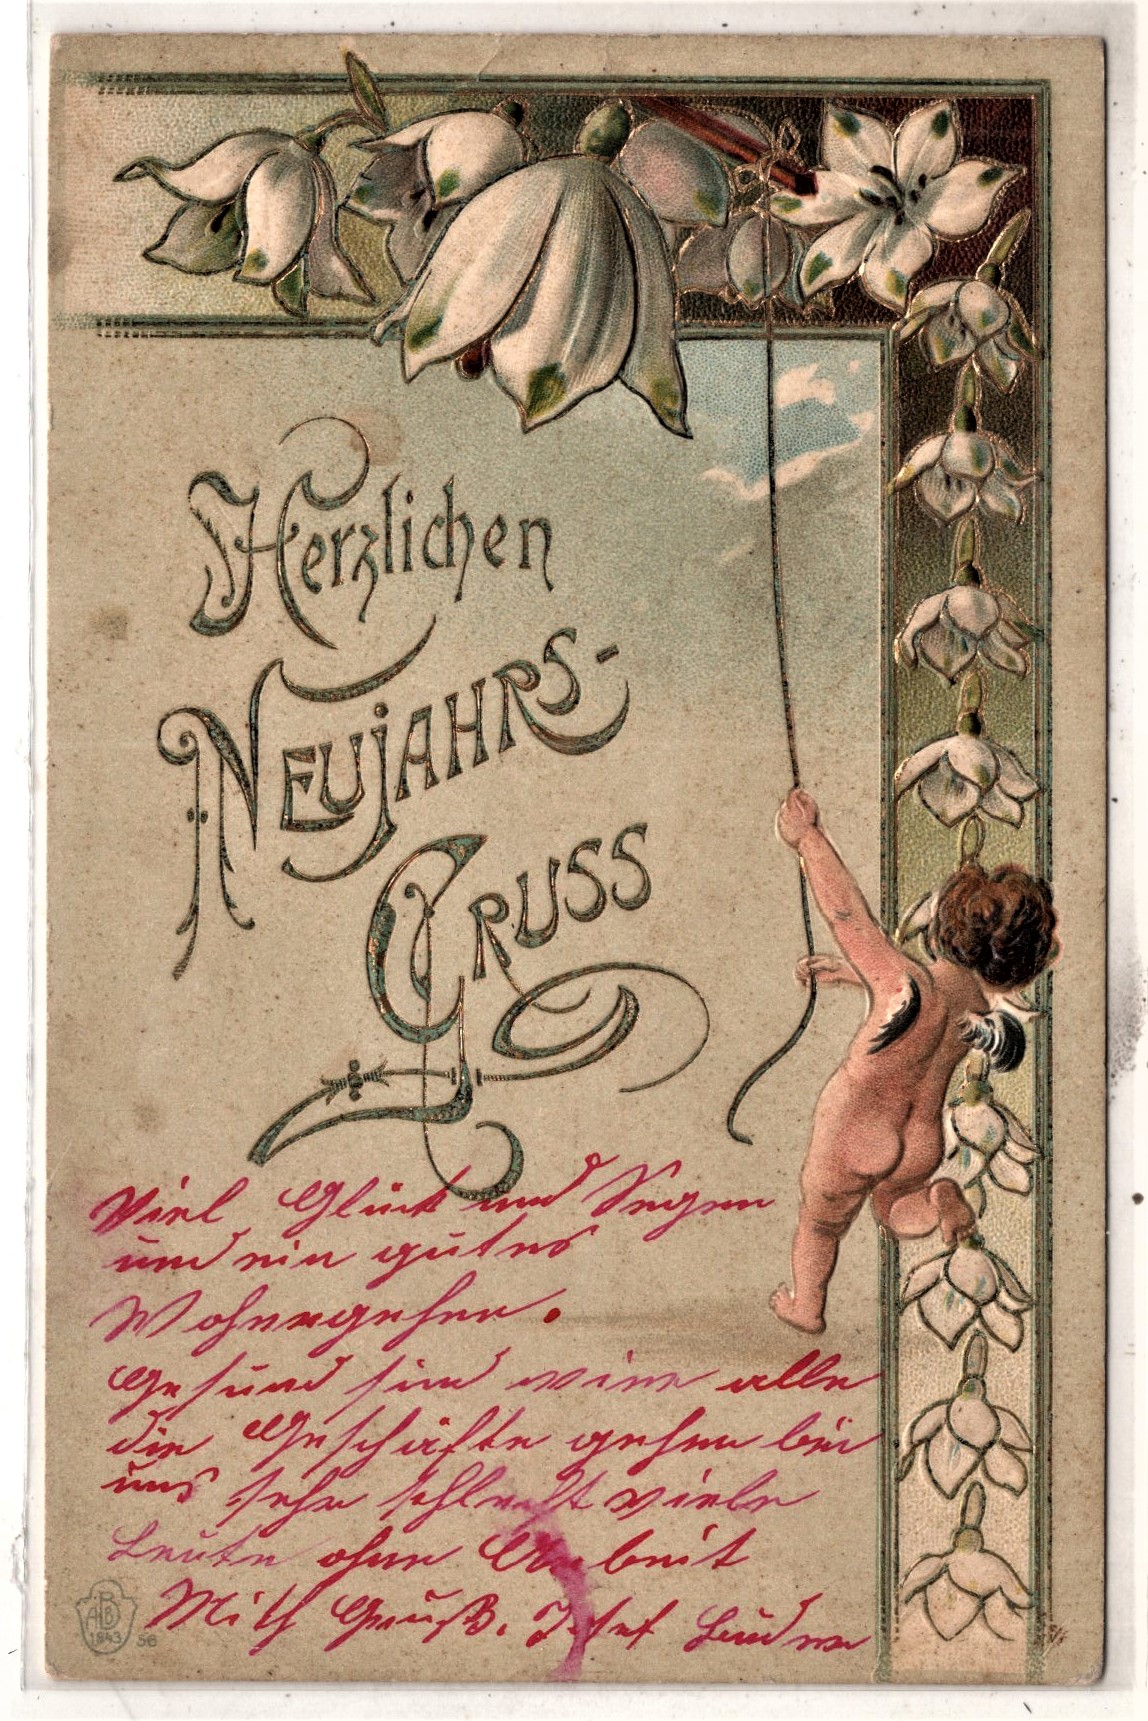 Herzlichen
Neujahrs-
Gruss
Viel Glück und Segen
und ein gutes
Wohergehen.
Gesund sind wier alle
die Geschäfte gehen bei
uns sehr schlecht viele
Leute ohne Arbeit
Mith Gruß. Josef
ABB
1843 56